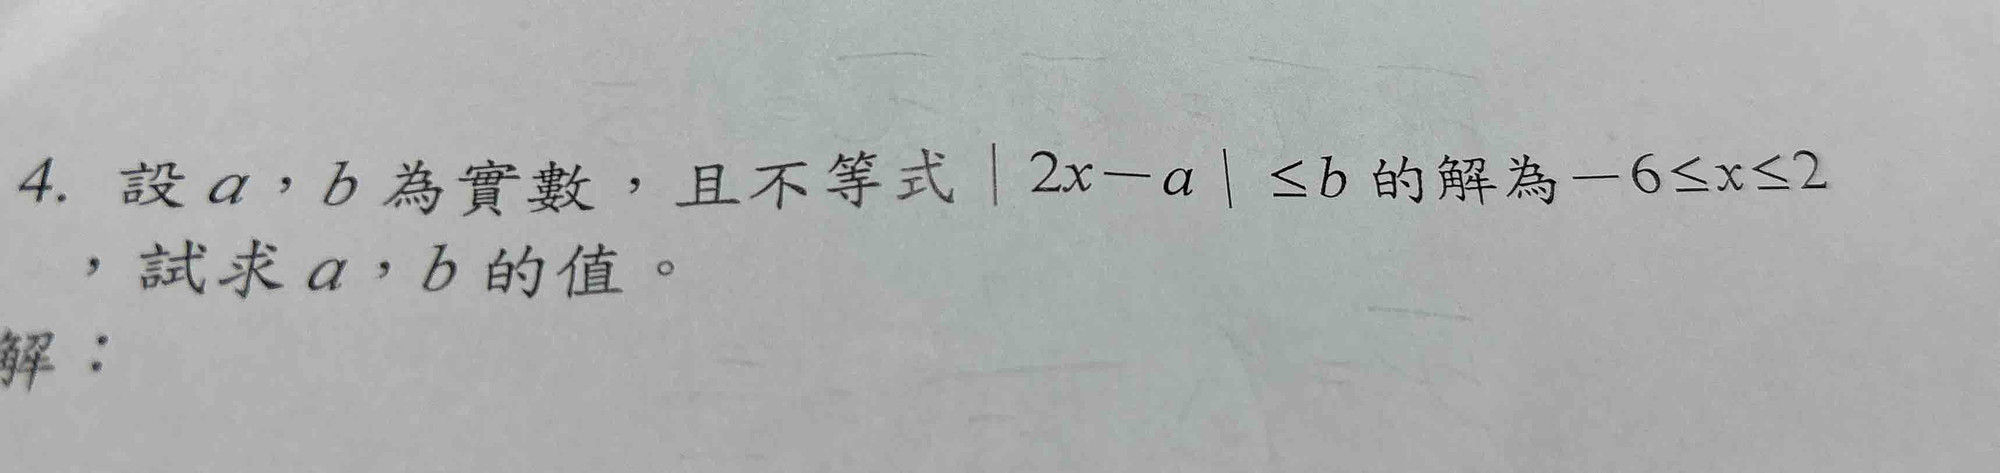 4. 設 a，b 為實數，且不等式｜2x－a｜≤b 的解為－6≤x≤2
，試求 a，b 的值。
解：